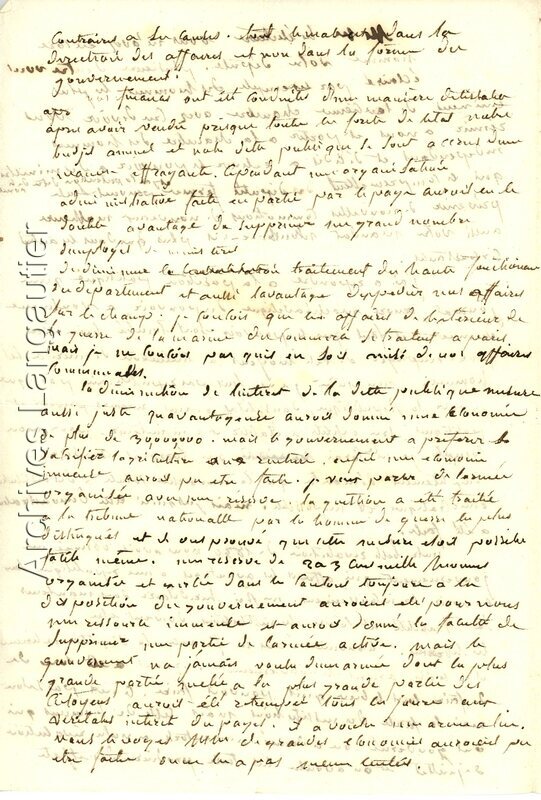 contraires a
direction des affaires et non dans la forme du
gouvernement.
finances ont été conduites d'une manière detestable
apr
apres avoir vendu presque toute la forêt de l'etat notre
budjet annuel et notre dette publique se sont accrus d'une
maniere effrayante. Cependant une organisation
administrative faite en partie par le pays auroit eu le
double avantage de supprimer un grand nombre
d'employés de ministere
de diminuer le traitement des hauts fonctionn
du département et aussi l'avantage d'expedier nos affaires
sur le champ. je conçois que les affaires de l'exterieur de
la guerre de la marine du commerce se traitent a paris
mais je ne conçois pas qu'il en soit de nos affaires
communales.
la diminution de l'interet de la dette publique mesure
aussi juste qu'avantageuse auroit donné une économie
de plus de 30000000. mais le gouvernement a preferer
sacrifier l'agriculture aux rentiers. enfin une économie
immense auroit pu etre faite. je veux parler de l'armée
organisée avec une reserve. la question a été traitée
a la tribune nationalle par les hommes de guerre les plus
distingués et ils ont prouvé que cette mesure etoit possible
facile même. une reserve de 2 a 3 cent mille hommes
organisée et exercée dans les cantons toujours a la
disposition du gouvernement auroient été pour nous
une ressource immense et auroit donné la faculté de
supprimer une partie de l'armée active. mais le
gouvernement n'a jamais voulu d'une armée dont la plus
grande partie melée a la plus grande partie des
citoyens auroit été retrempée tous les jours aux
veritables interet du pays. il a voulu une armée a lui.
vous le voyez MM. de grandes economies auroient pu
etre faites on ne les a pas meme tentées.
Archives Langautier